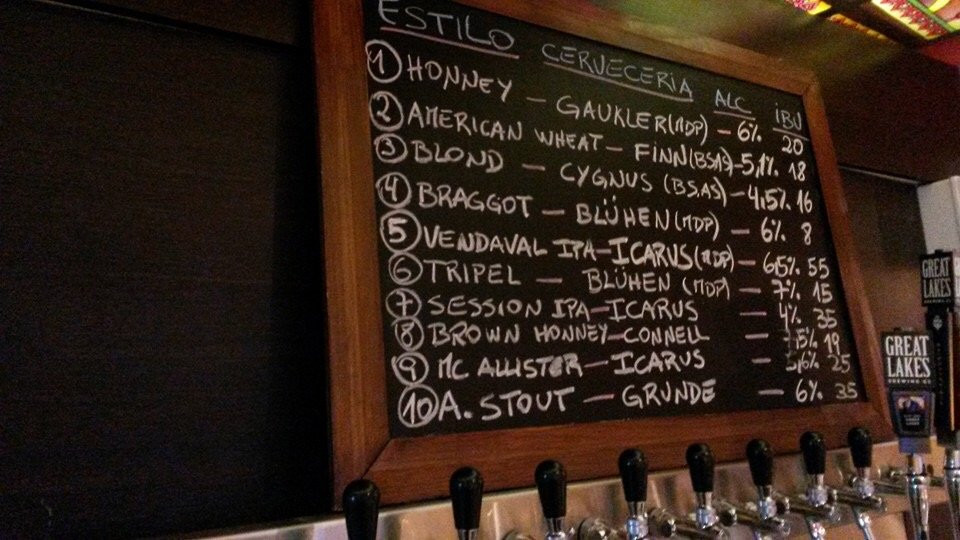 ESTILO CERVECERIA ALC IBU
1 HONNEY — GAUKLER (MDP) — 6% 20
2 AMERICAN WHEAT — FINN (BSAS) — 5,1% 18
3 BLOND — CYGNUS (BS.AS) — 4,5% 16
4 BRAGGOT — BLÜHEN (MDP) — 6% 8
5 VENDAVAL IPA — ICARUS (MDP) — 6,5% 55
6 TRIPEL — BLÜHEN (MDP) — 7% 15
7 SESSION IPA — ICARUS — 4% 35
8 BROWN HONNEY — CONNELL — 19
9 MC ALLISTER — ICARUS — 5,6% 25
10 A. STOUT — GRUNDE — 6% 35
GREAT LAKES
GREAT LAKES
BREWING CO